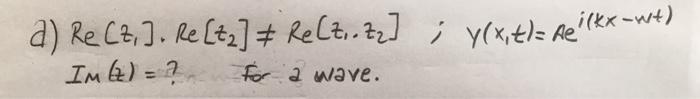 a) Re[z₁]. Re[z₂] ≠ Re[z₁.z₂] ; y(x,t)= Ae^i(kx-wt)
Im(z) = ? for a wave.